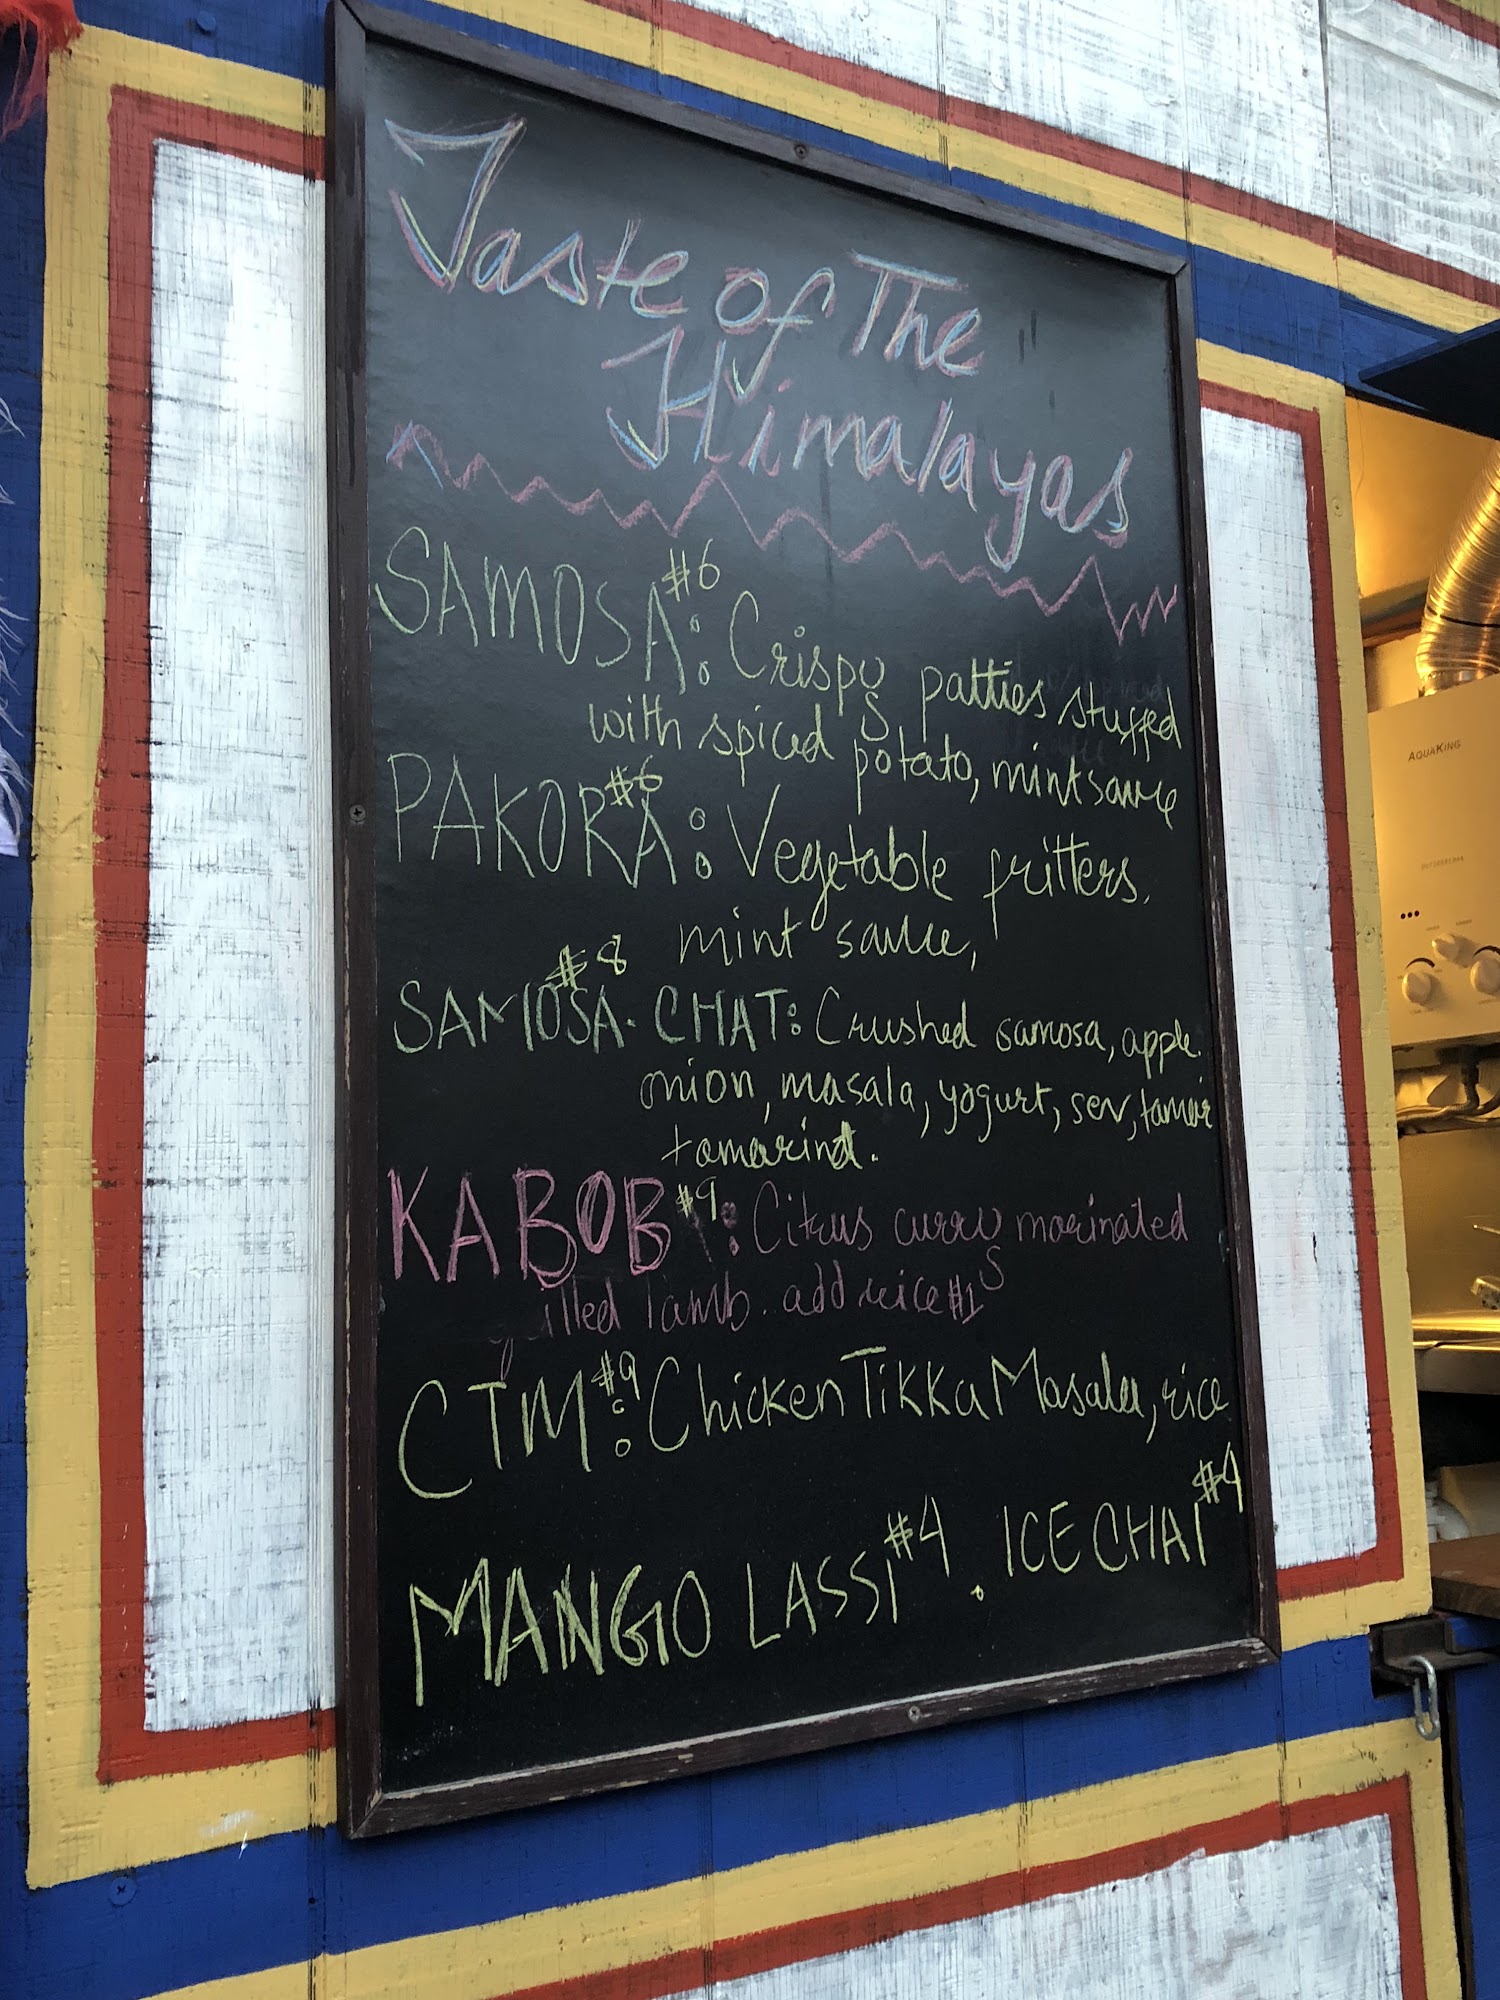 Taste of The
Himalayas
SAMOSA $6: Crispy patties stuffed
with spiced potato, mint sauce
PAKORA $6: Vegetable fritters.
mint sauce,
SAMOSA. CHAT: $8 Crushed samosa, apple.
onion, masala, yogurt, sev,
tamarind.
KABOB $9: Citrus curry marinated
grilled lamb. add rice $1
CTM $9: Chicken Tikka Masala, rice
MANGO LASSI $4. ICE CHAI $4
AQUAKING